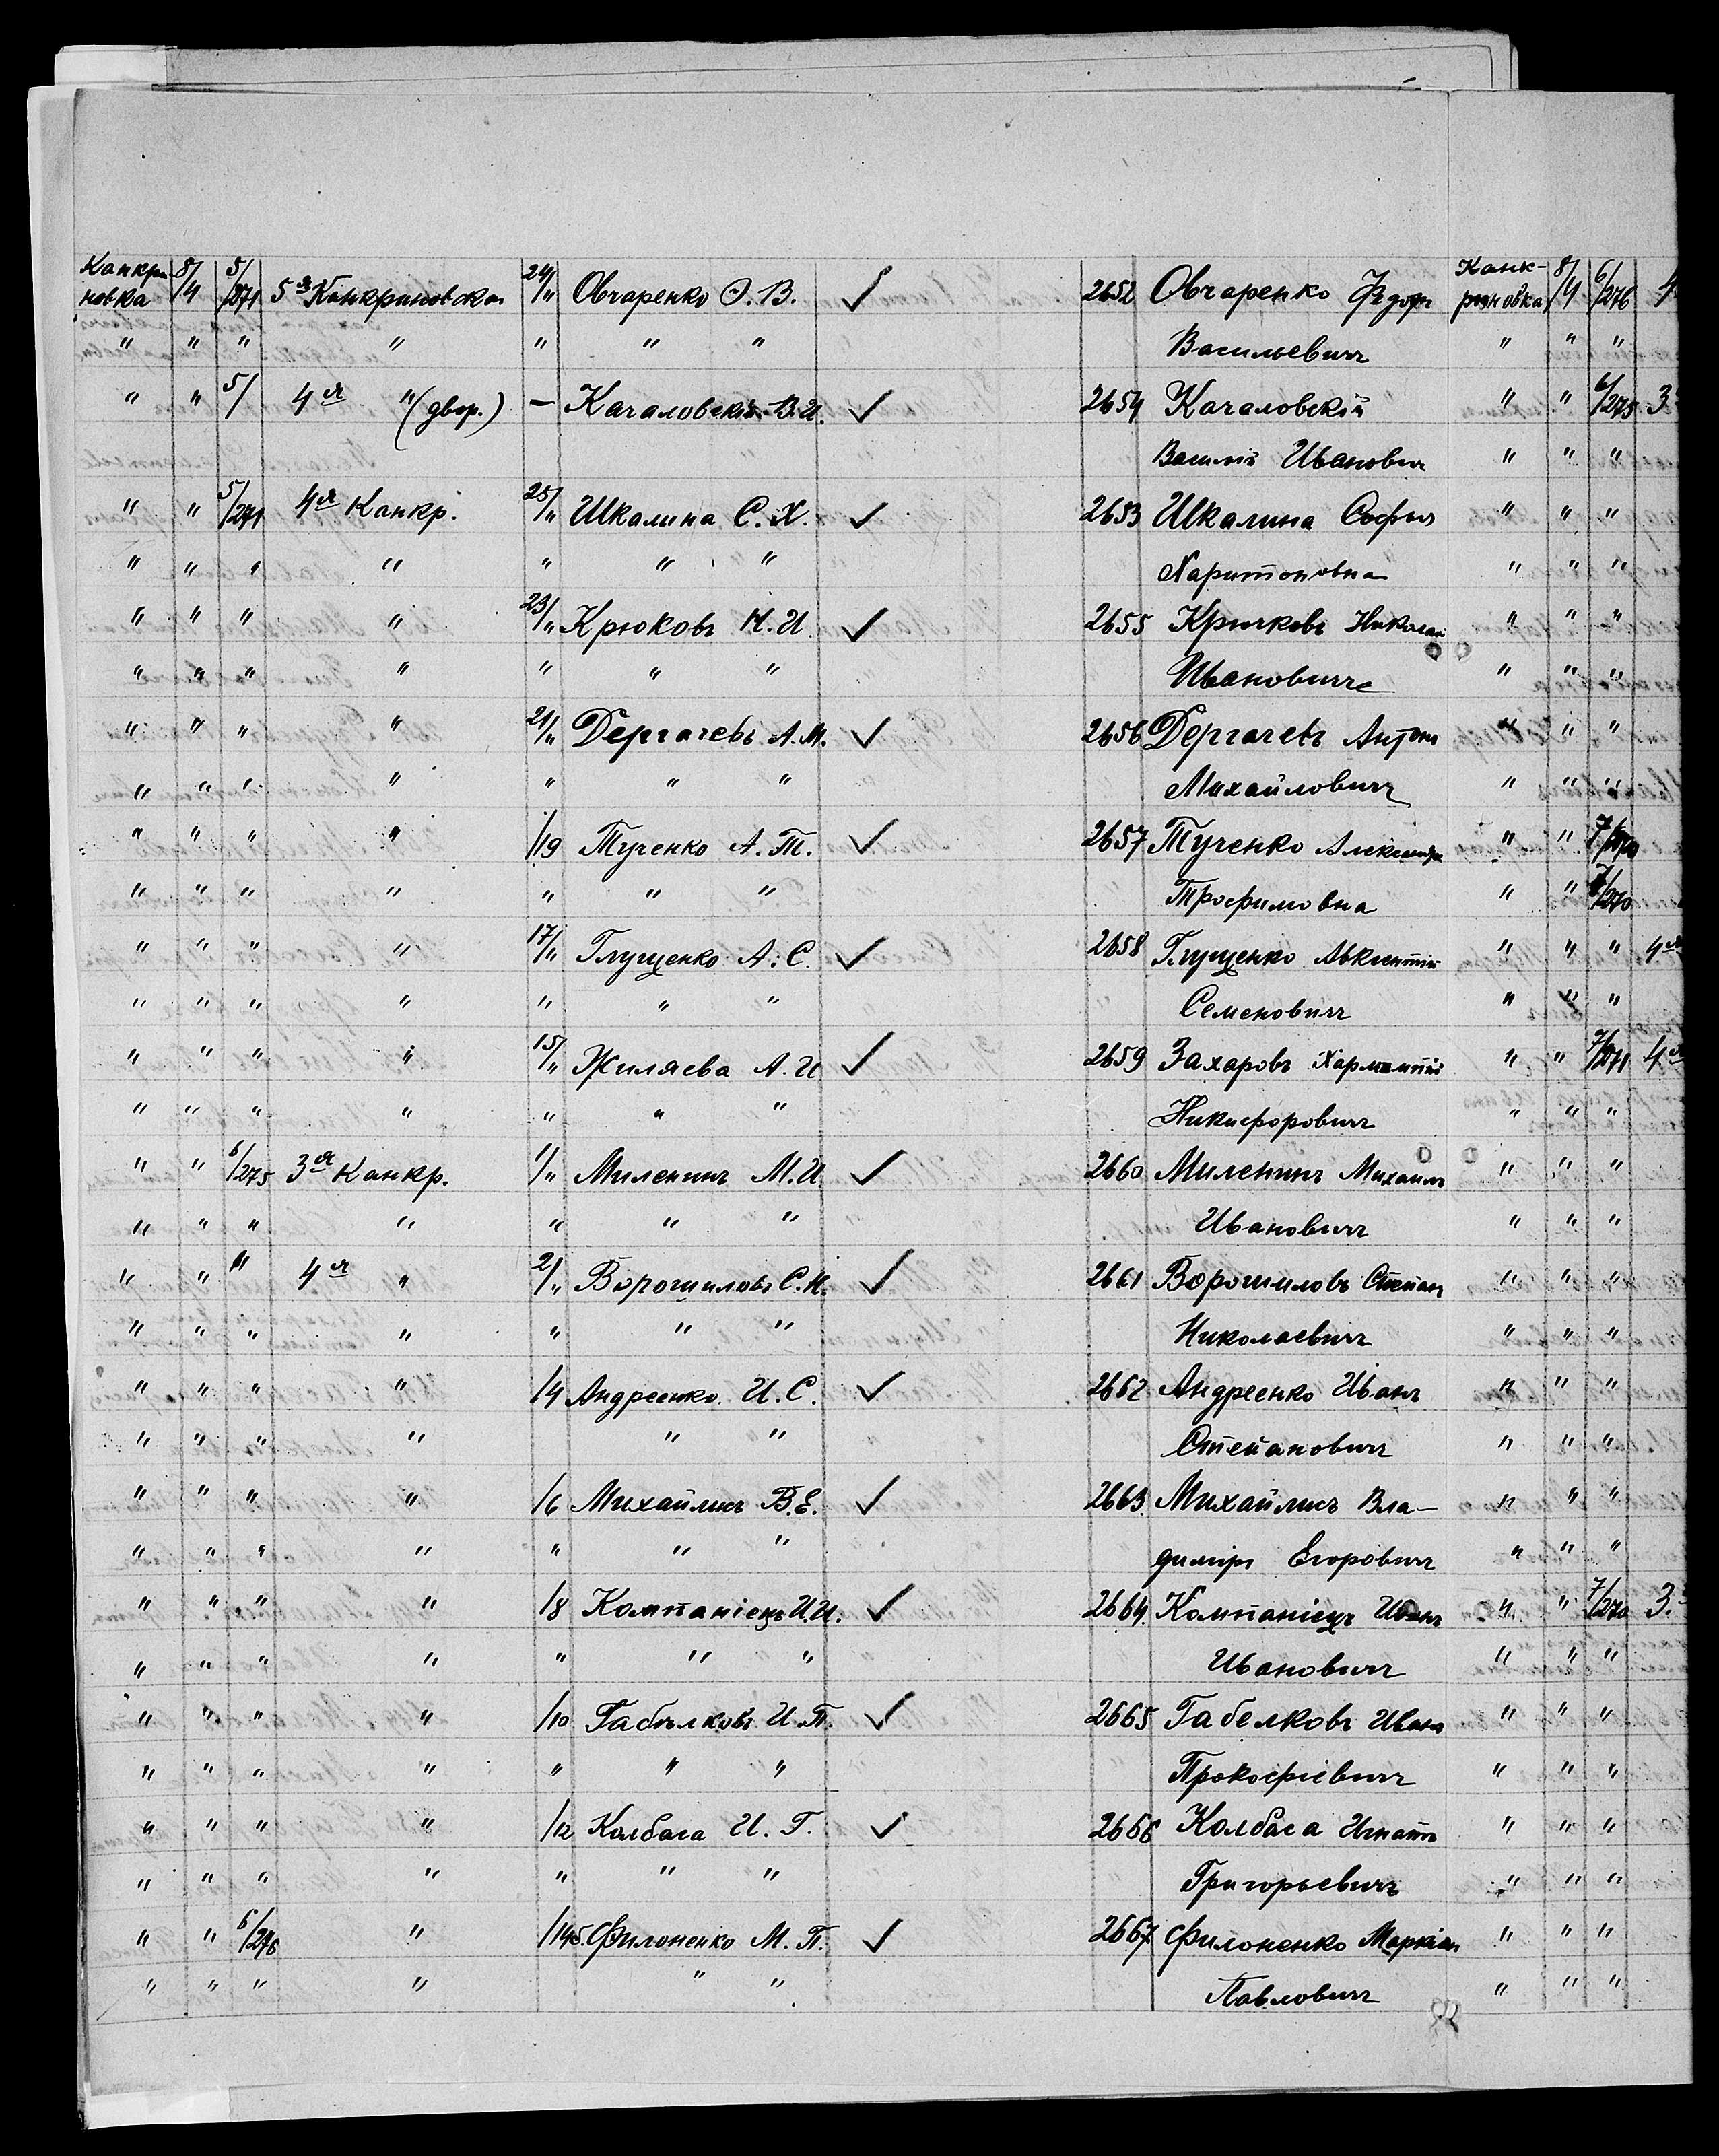 Канкри- 8/ 5/ 24/ Канк- 8/ 6/
новка 4 271 5я Канкриновская " Овчаренко Ѳ. В. ✓ 2652 Овчаренко Ѳедоръ риновка 4 276 4
" " " " " " " Васильевичъ " " "
" " 5/ 4я " (двор.) — Качаловскій В. И. ✓ 2654 Качаловскій " " 6/275 3
Василій Ивановичъ " " "
" " 5/271 4я Канкр. 25/" Шкалина С. Х. ✓ 2653 Шкалина Софья " " "
" " " " " " " Харитоновна " " "
" " " " 23/" Крюковъ Н. И. ✓ 2655 Крючковъ Николай " " "
" " " " " " " Ивановичъ " " "
" " " " 21/" Дергачевъ А. М. ✓ 2656 Дергачевъ Антонъ " " "
" " " " " " " Михайловичъ " " "
" " " " /19 Тученко А. Т. ✓ 2657 Тученко Александра " " 7/270
" " " " " " " Трофимовна " " 7/270
" " " " 17/" Глущенко А. С. ✓ 2658 Глущенко Авксентій " " " 4я
" " " " " " " Семеновичъ " " "
" " " " 15/" Жиляева А. И ✓ 2659 Захаровъ " " 7/271 4я
" " " " " " " Никифоровичъ " " "
" " 6/275 3я Канкр. 1/" Миленинъ М. И ✓ 2660 Миленинъ Михаилъ " " "
" " " " " " " Ивановичъ " " "
" " " 4я " 2/" Ворошиловъ С. Н. ✓ 2661 Ворошиловъ Степанъ " " "
" " " " " " " Николаевичъ " " "
" " " " /4 Андреенко И. С. ✓ 2662 Андреенко Иванъ " " "
" " " " " " Степановичъ " " "
" " " " /6 Михайлисъ В. Е. ✓ 2663. Михайлисъ Вла- " " "
" " " " " " " димiръ Егоровичъ " " "
" " " " /8 Компаніецъ И. И. ✓ 2664. Компаніецъ Иванъ " " 7/270 3.
" " " " " " " Ивановичъ " " "
" " " " /10 Габѣлковъ И. П. ✓ 2665 Габелковъ Иванъ " " "
" " " " " " " Прокофіевичъ " " "
" " " " /12 Колбаса И. Г. ✓ 2666 Колбаса Игнатъ " " "
" " " " " " " Григорьевичъ " " "
" " 6/276 " Филоненко М. П. ✓ 2667 Филоненко Маркіанъ " " "
" " " " " " Павловичъ " " "